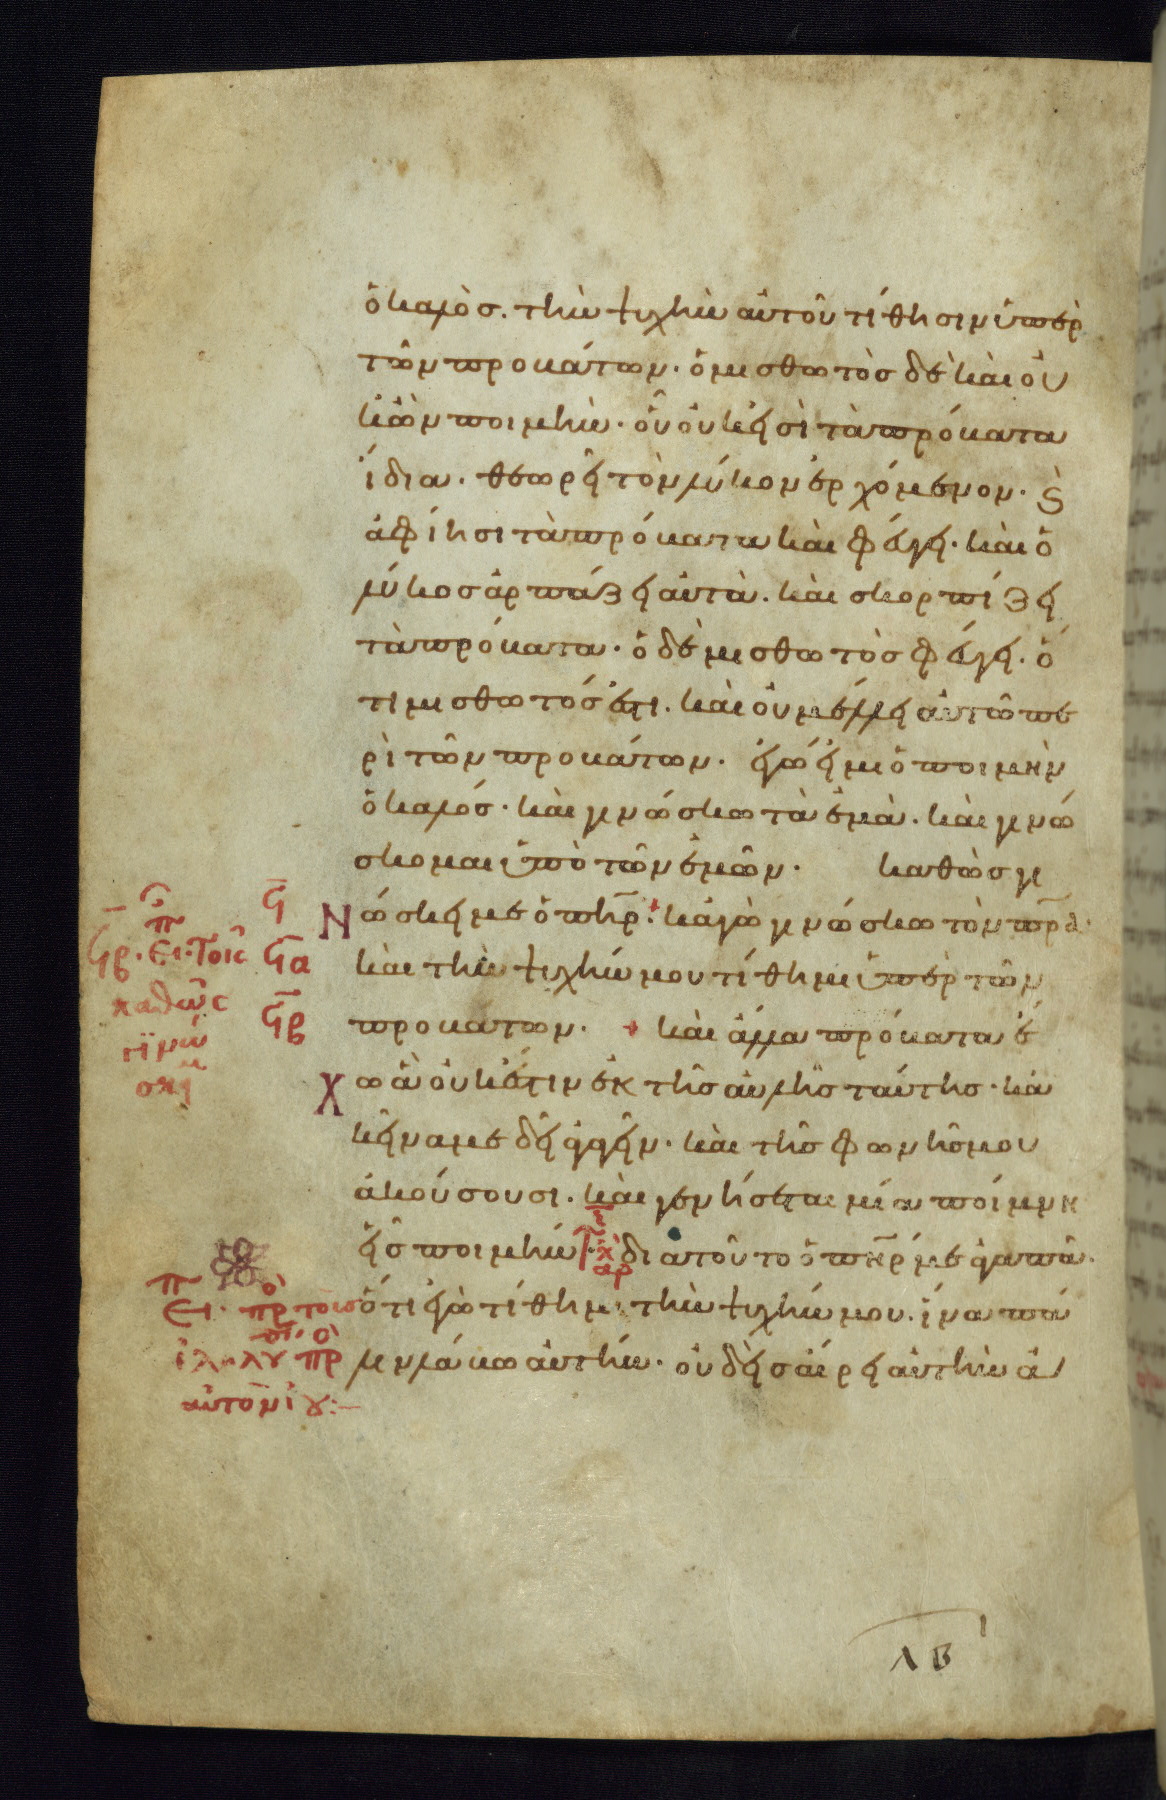 ὁ καλὸσ. τὴν ψυχὴν αὐτοῦ τίθησιν ὑπὲρ
τῶν προβάτων. ὁ μισθωτὸσ δὲ καὶ οὐ
κ ὢν ποιμὴν. οὗ οὐκ εἰσὶ τὰ πρόβατα
ἴδια. θεωρεῖ τὸν λύκον ἐρχόμενον. ϗ
ἀφίησι τὰ πρόβατα καὶ φεύγει. καὶ ὁ
λύκοσ ἁρπάζει αὐτὰ. καὶ σκορπίζει
τὰ πρόβατα. ὁ δὲ μισθωτὸσ φεύγει. ὅ
τι μισθωτόσ ἐστι. καὶ οὐ μέλλει αὐτῶ πε
ρὶ τῶν προβάτων. ἐγώ εἰμι ὁ ποιμὴν
ὁ καλόσ. καὶ γινώσκω τὰ ἐμὰ. καὶ γινώ
σκομαι ὑπὸ τῶν ἐμῶν. καθὼσ γι
Νώσκει με ὁ πη̅ρ. κἀγὼ γινώσκω τὸν πρ̅α.
καὶ τὴν ψυχήν μου τίθημι ὑπὲρ τῶν
προβάτων. καὶ ἄλλα πρόβατα ἔ
Χω ἃ οὐκ ἔστιν ἐκ τῆσ αὐλῆσ ταύτησ. κἀ
κεῖνα με δεῖ ἀγαγεῖν. καὶ τῆσ φωνῆσ μου
ἀκούσουσι. καὶ γενήσεται μία ποίμνη
εἷσ ποιμήν. διατοῦτο ὁ πη̅ρ με ἀγαπᾶ.
ὅτι ἐγὼ τίθημι τὴν ψυχήν μου. ἵνα πά
λιν λάβω αὐτήν. οὐδεὶσ αἴρει αὐτὴν ἀ
καθὼς
γινώ
σκει
ΛΒ